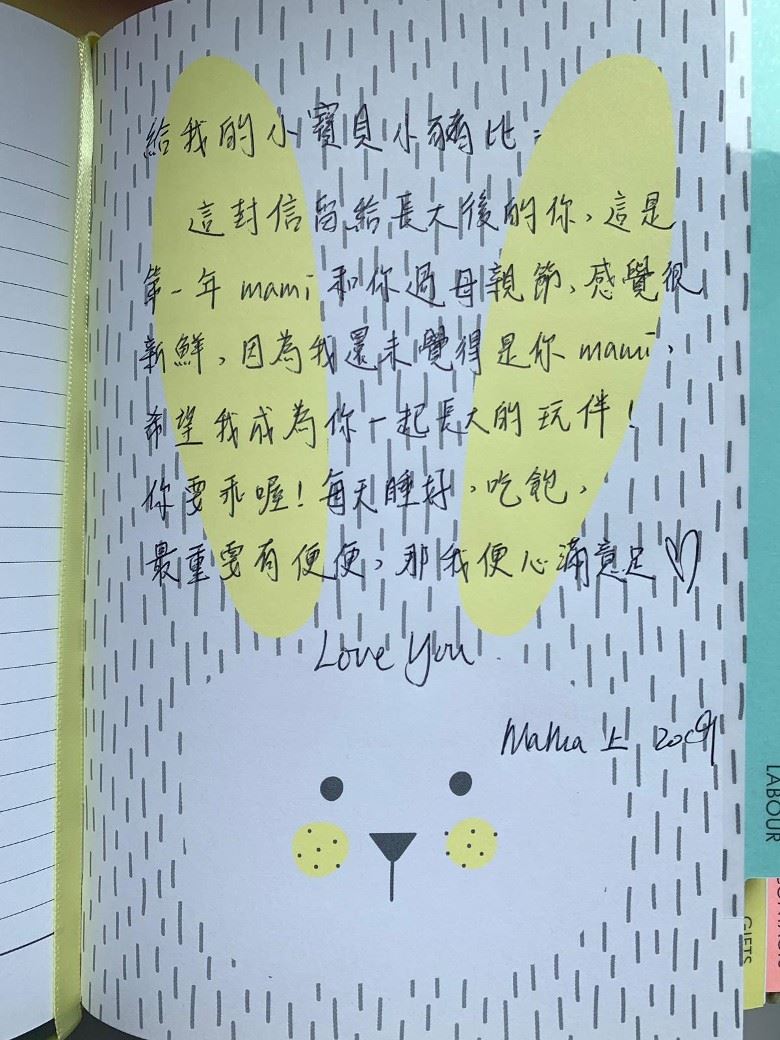 給我的小寶貝小豬比：
這封信留給長大後的你，這是
第一年mami和你過母親節，感覺很
新鮮，因為我還未覺得是你mami，
希望我成為你一起長大的玩伴！
你要乖喔！每天睡好，吃飽，
最重要有便便，那我便心滿意足♡
Love You
MaMa 上
LABOUR
GIFTS